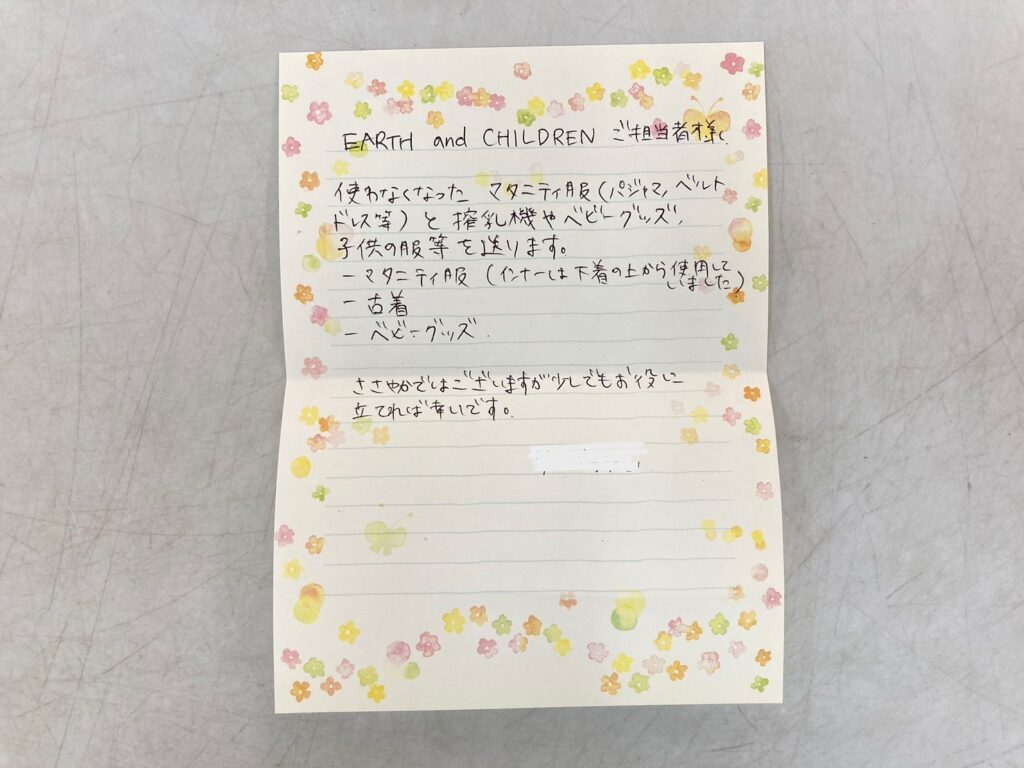 EARTH and CHILDREN ご担当者様へ
使わなくなった マタニティ服(パジャマ、ベルト
ドレス等)と搾乳機やベビーグッズ、
子供の服等を送ります。
- マタニティ服 (インナーは下着の上から使用して
しました)
- 古着
- ベビーグッズ.
ささやかではございますが少しでもお役に
立てれば幸いです。